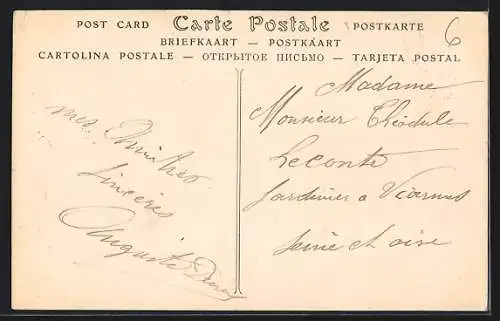 POST CARD Carte Postale POSTKARTE
BRIEFKAART — POSTKAART
CARTOLINA POSTALE — ОТКРЫТОЕ ПИСЬМО — TARJETA POSTAL
6
mes Amitiés
sincères
Auguste
Madame
Monsieur Théodule
Leconte
Jardinier a Viarmes
Seine et oise